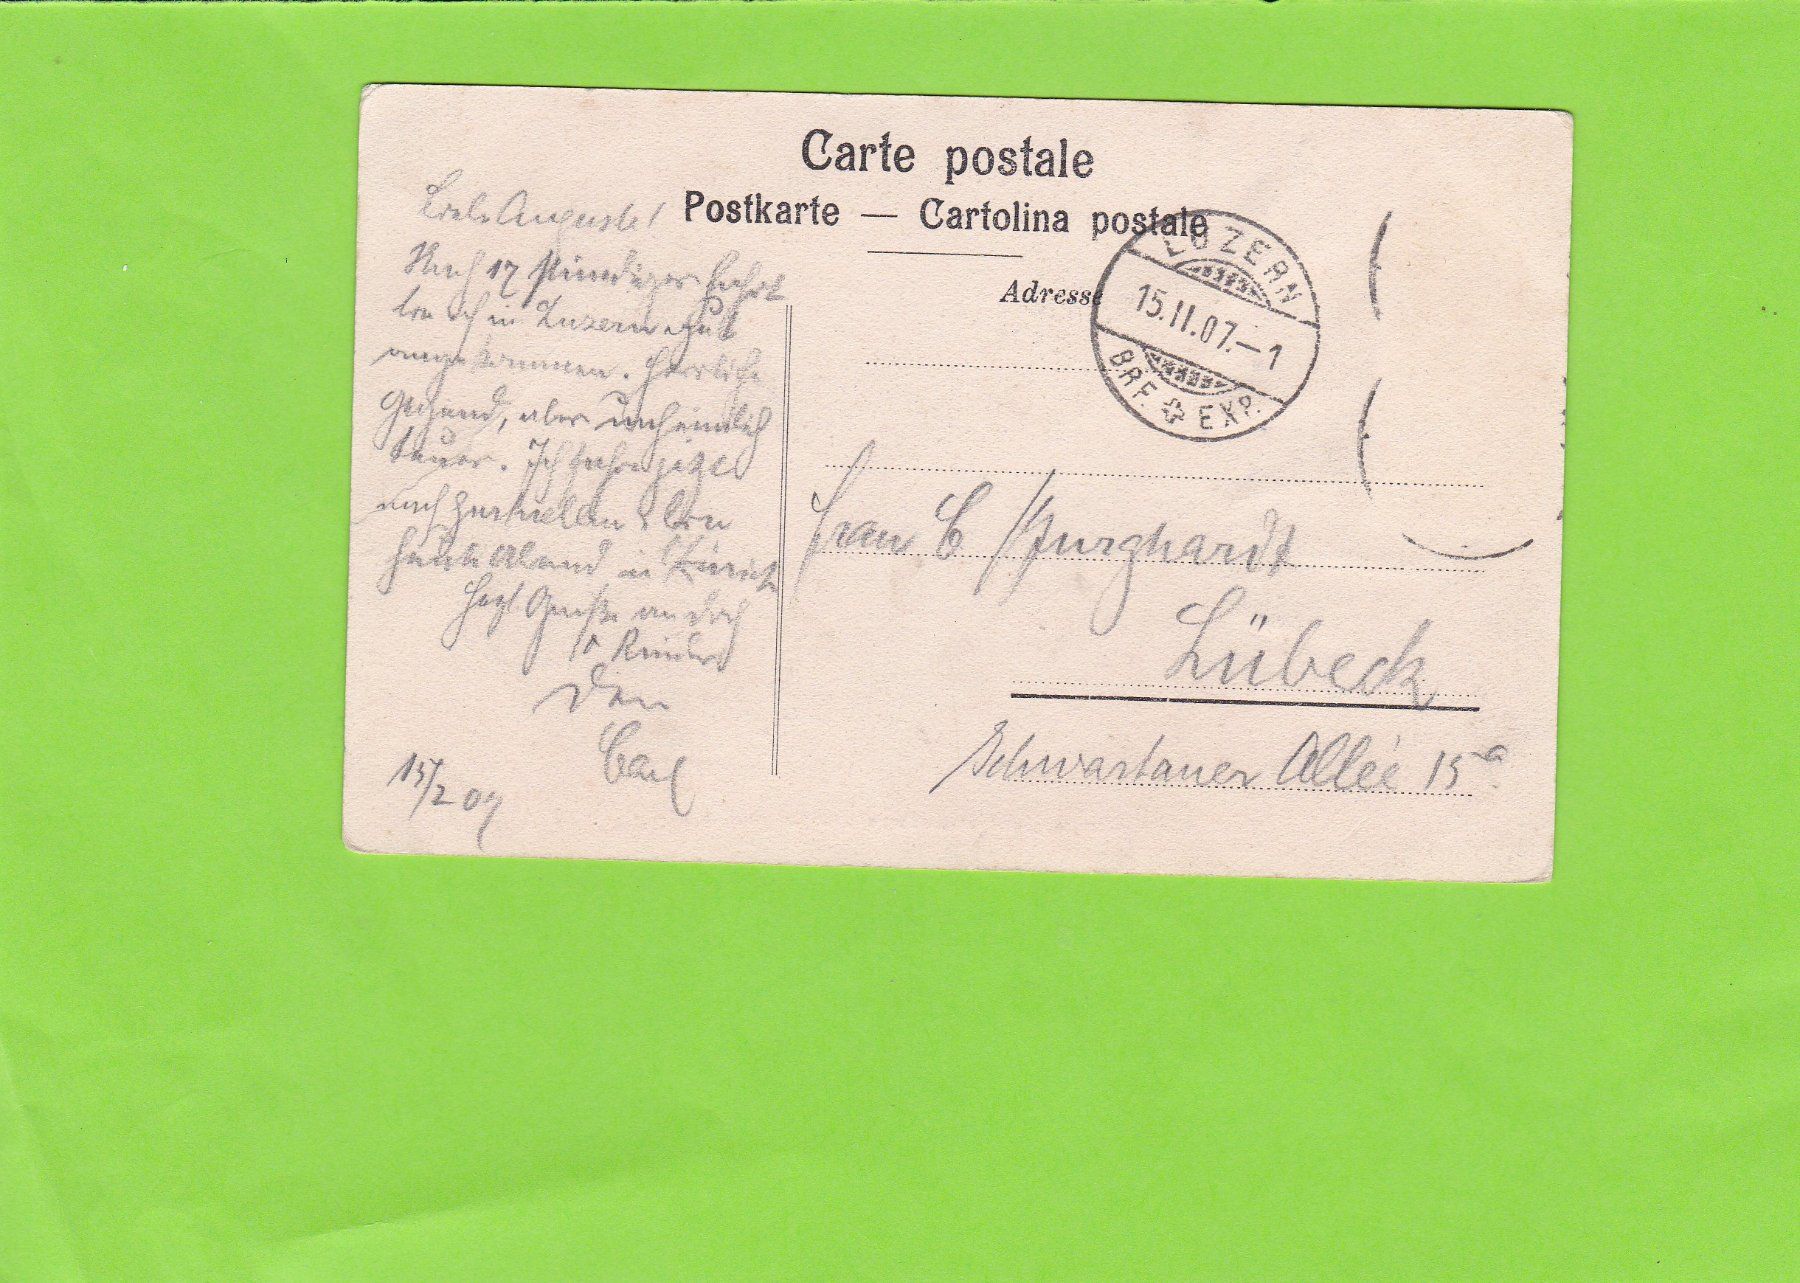 Carte postale
Postkarte — Cartolina postale
Adresse
LUZERN
15.II.07.—1
BRF. EXP.
Liebe Auguste!
Nach 17 stündiger Fahrt
bin ich in Luzern gut
angekommen. Herrliche
Gegend, aber unheimlich
teuer. Ich fahre jetzt
nach bin
heute Abend in Zürich
Herzl Grüße an Dich
Kinder
Dein
Carl
15/2 07
Frau C
Lübeck
Schwartauer Allée 15a